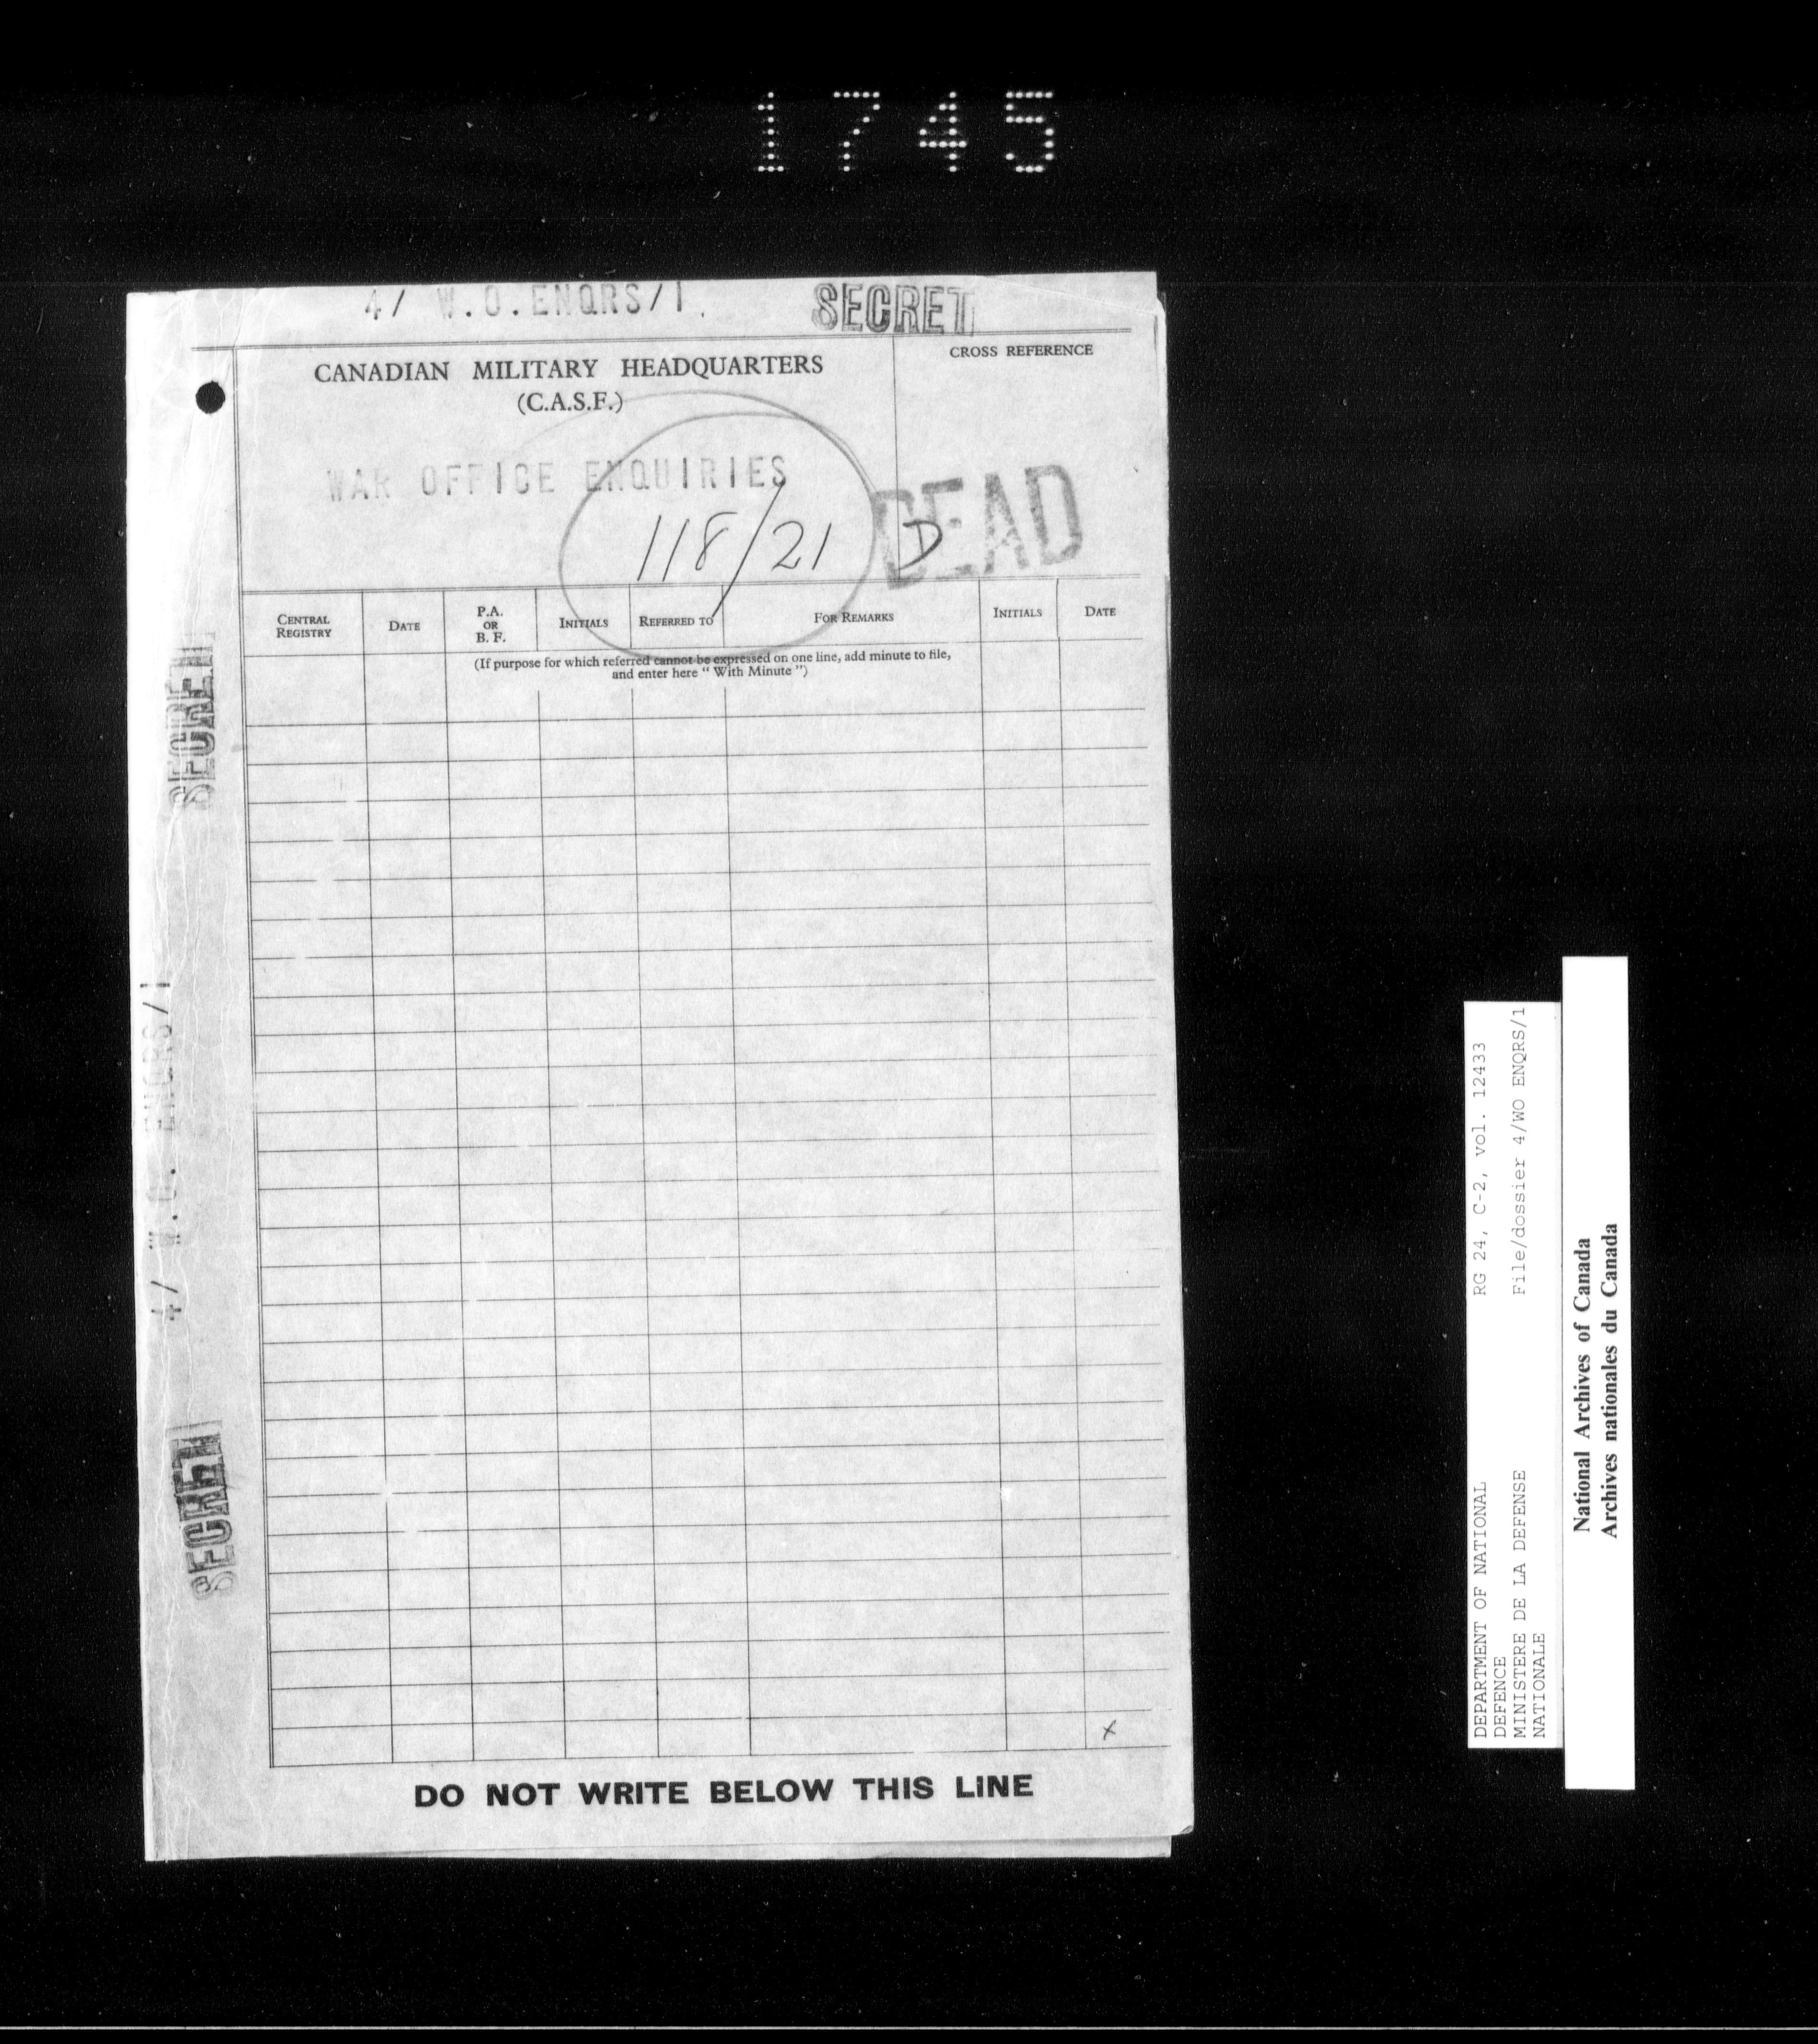 1745
4/ W.O.ENQRS/1.
SECRET
CANADIAN MILITARY HEADQUARTERS
(C.A.S.F.)
CROSS REFERENCE
WAR OFFICE ENQUIRIES
118/21
DEAD
D
CENTRAL REGISTRY
DATE
P.A. OR B. F.
INITIALS
REFERRED TO
FOR REMARKS
INITIALS
DATE
(If purpose for which referred cannot be expressed on one line, add minute to file,
and enter here “ With Minute ”)
SECRET
4/ W.O. ENQRS/1
SECRET
x
DO NOT WRITE BELOW THIS LINE
DEPARTMENT OF NATIONAL
DEFENCE
MINISTERE DE LA DEFENSE
NATIONALE
RG 24, C-2, vol. 12433
File/dossier 4/WO ENQRS/1
National Archives of Canada
Archives nationales du Canada